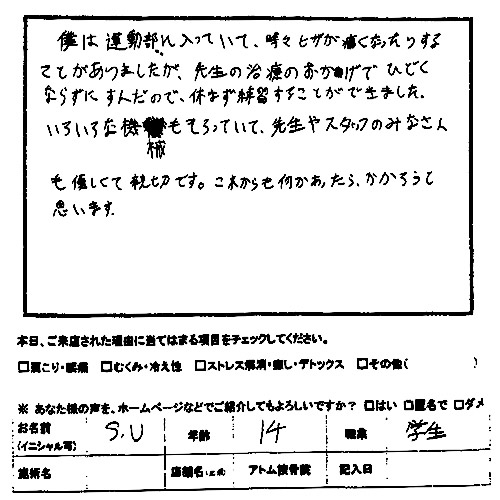 僕は運動部に入っていて、時々ヒザが痛くなったりする
ことがありましたが、先生の治療のおかげでひどく
ならずにすんだので、休まず練習することができました。
いろいろな機械もそろっていて、先生やスタッフのみなさん
も優しくて親切です。これからも何かあったら、かかろうと
思います。
本日、ご来店された理由に当てはまる項目をチェックしてください。
□肩こり・腰痛 □むくみ・冷え性 □ストレス解消・癒し・デトックス □その他( )
※ あなた様の声を、ホームページなどでご紹介してもよろしいですか? □はい □匿名で □ダメ
お名前(イニシャル可) S.U 年齢 14 職業 学生
施術名 店舗名 アトム接骨院 記入日